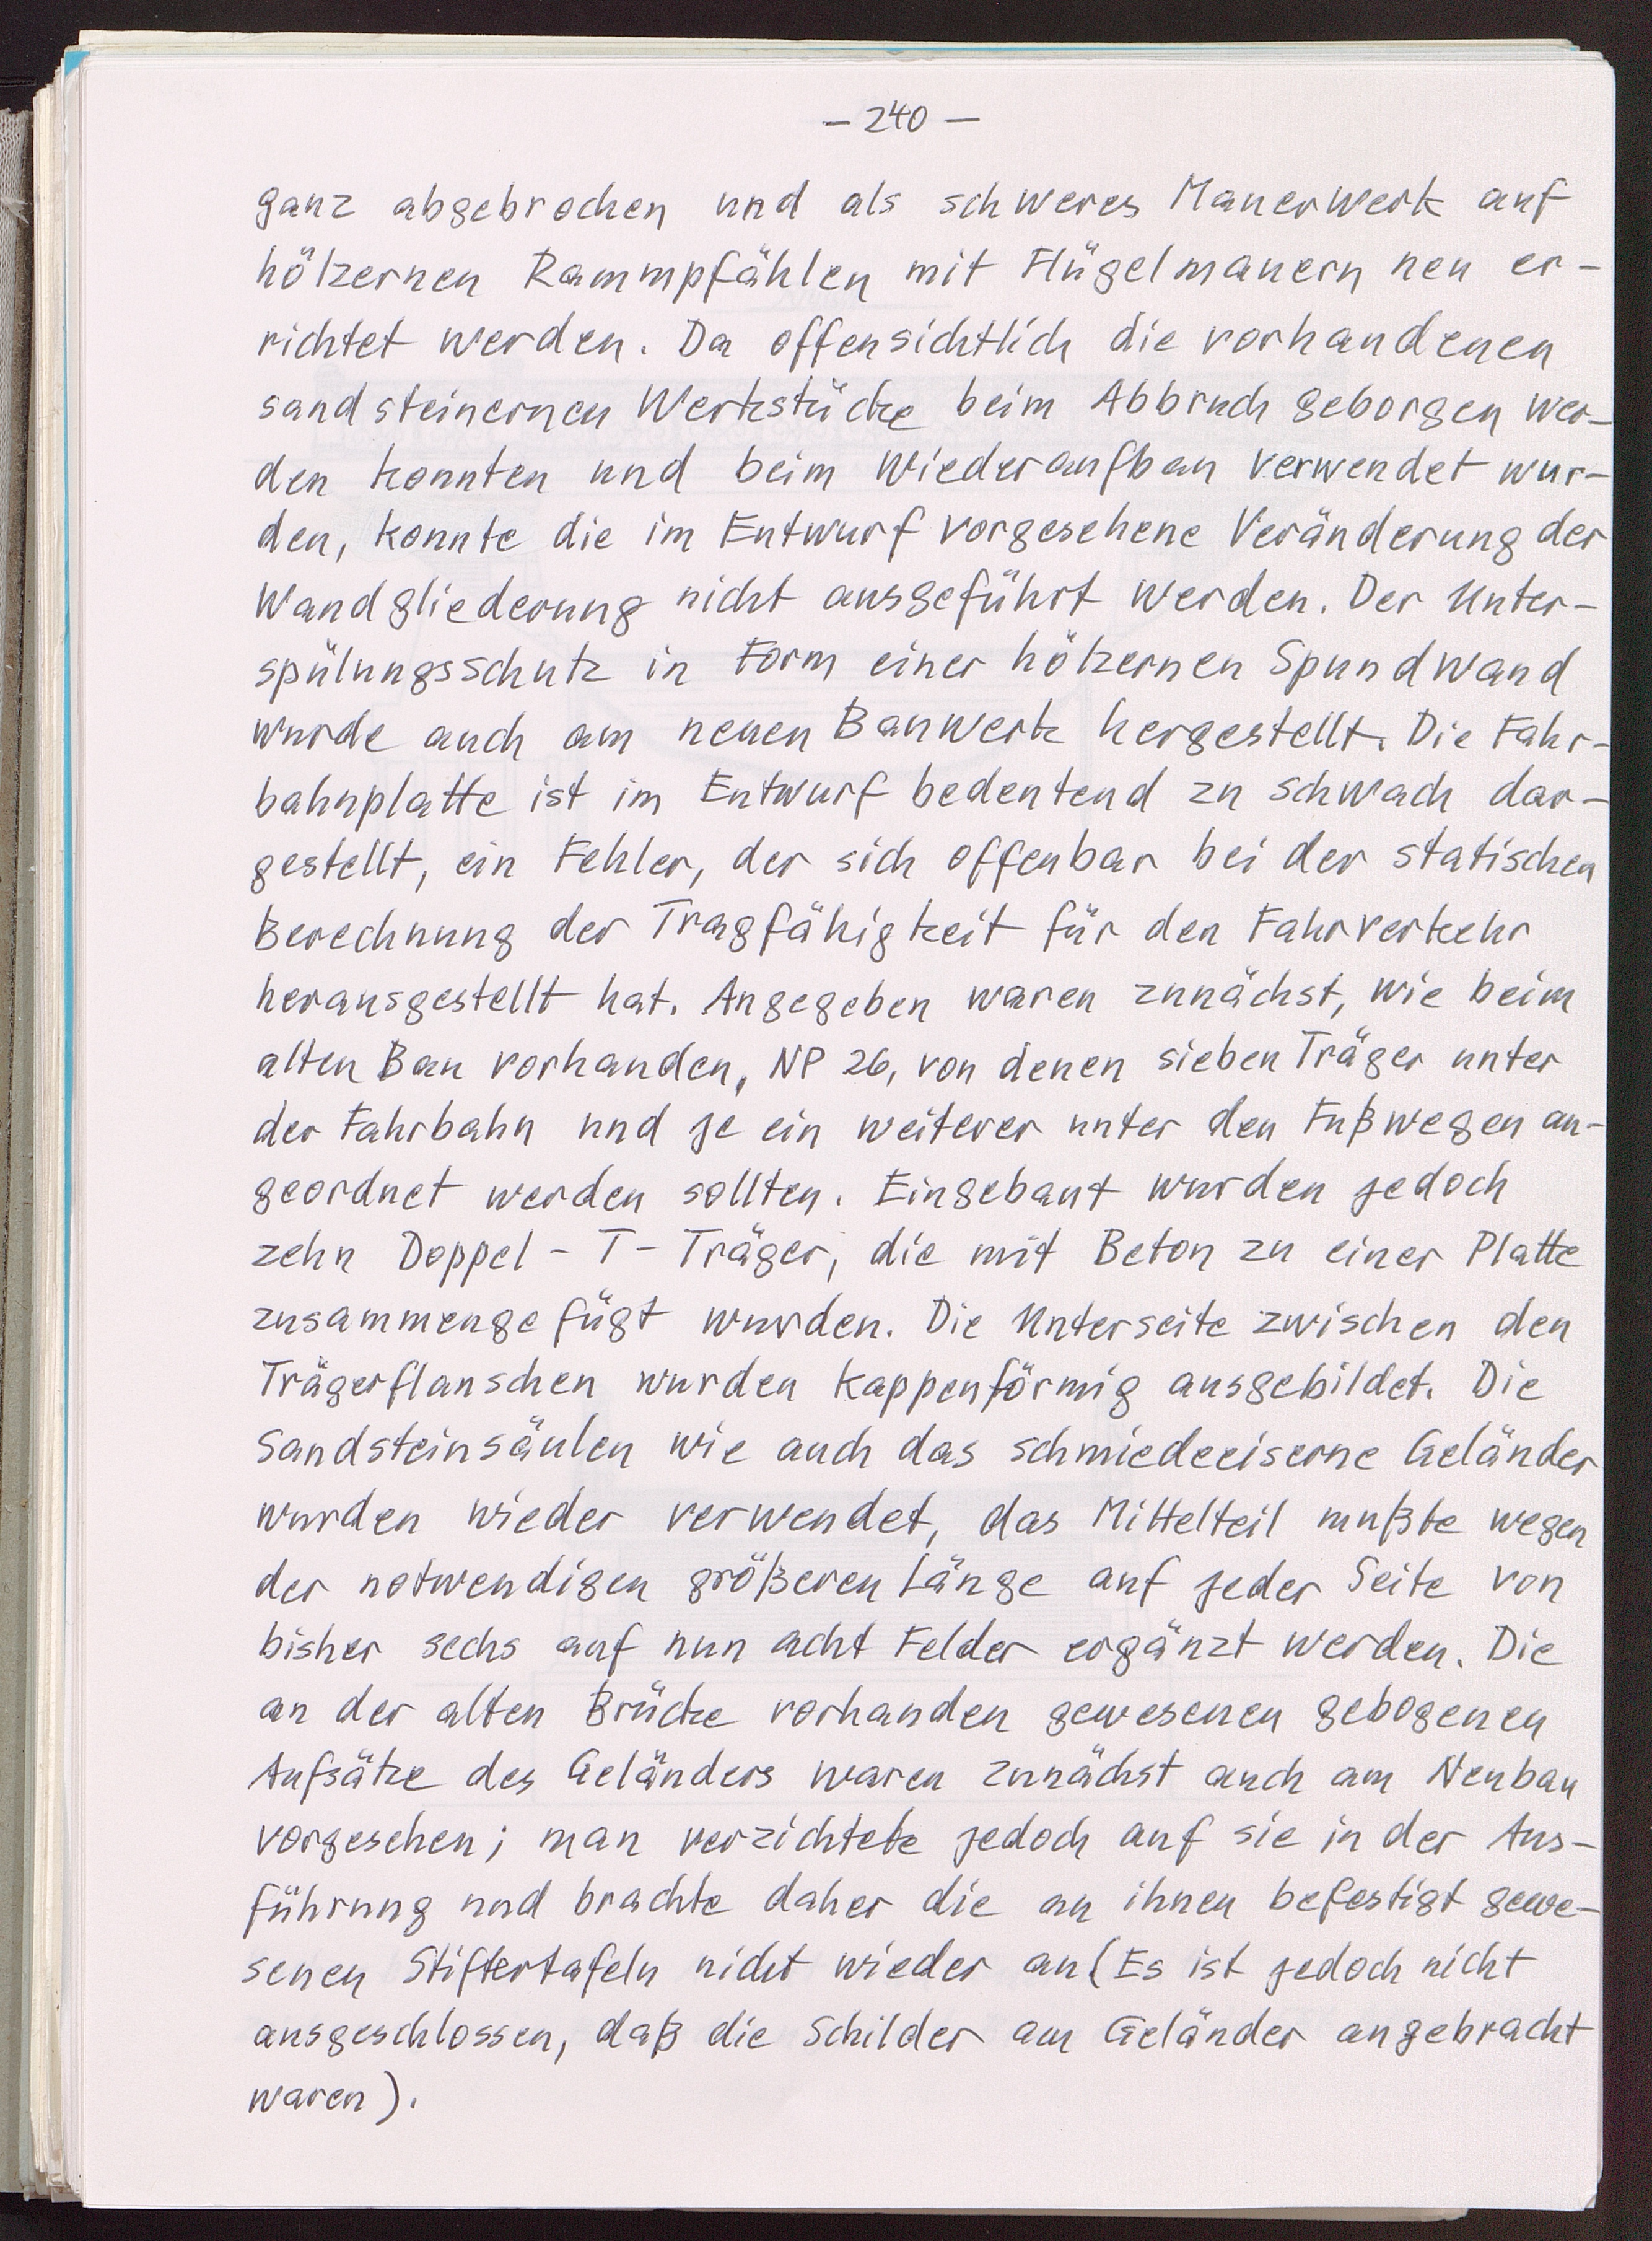 – 240 –
ganz abgebrochen und als schweres Mauerwerk auf
hölzernen Rammpfählen mit Flügelmauern neu er-
richtet werden. Da offensichtlich die vorhandenen
sandsteinernen Werkstücke beim Abbruch geborgen wer-
den konnten und beim Wiederaufbau verwendet wur-
den, konnte die im Entwurf vorgesehene Veränderung der
Wandgliederung nicht ausgeführt werden. Der Unter-
spülungsschutz in Form einer hölzernen Spundwand
wurde auch am neuen Bauwerk hergestellt. Die Fahr-
bahnplatte ist im Entwurf bedeutend zu schwach dar-
gestellt, ein Fehler, der sich offenbar bei der statischen
Berechnung der Tragfähigkeit für den Fahrverkehr
herausgestellt hat. Angegeben waren zunächst, wie beim
alten Bau vorhanden, NP 26, von denen sieben Träger unter
der Fahrbahn und je ein weiterer unter den Fußwegen an-
geordnet werden sollten. Eingebaut wurden jedoch
zehn Doppel-T-Träger, die mit Beton zu einer Platte
zusammengefügt wurden. Die Unterseite zwischen den
Trägerflanschen wurden kappenförmig ausgebildet. Die
Sandsteinsäulen wie auch das schmiedeeiserne Geländer
wurden wieder verwendet, das Mittelteil mußte wegen
der notwendigen größeren Länge auf jeder Seite von
bisher sechs auf nun acht Felder ergänzt werden. Die
an der alten Brücke vorhanden gewesenen gebogenen
Aufsätze des Geländers waren zunächst auch am Neubau
vorgesehen; man verzichtete jedoch auf sie in der Aus-
führung und brachte daher die an ihnen befestigt gewe-
senen Stiftertafeln nicht wieder an (Es ist jedoch nicht
ausgeschlossen, daß die Schilder am Geländer angebracht
waren).